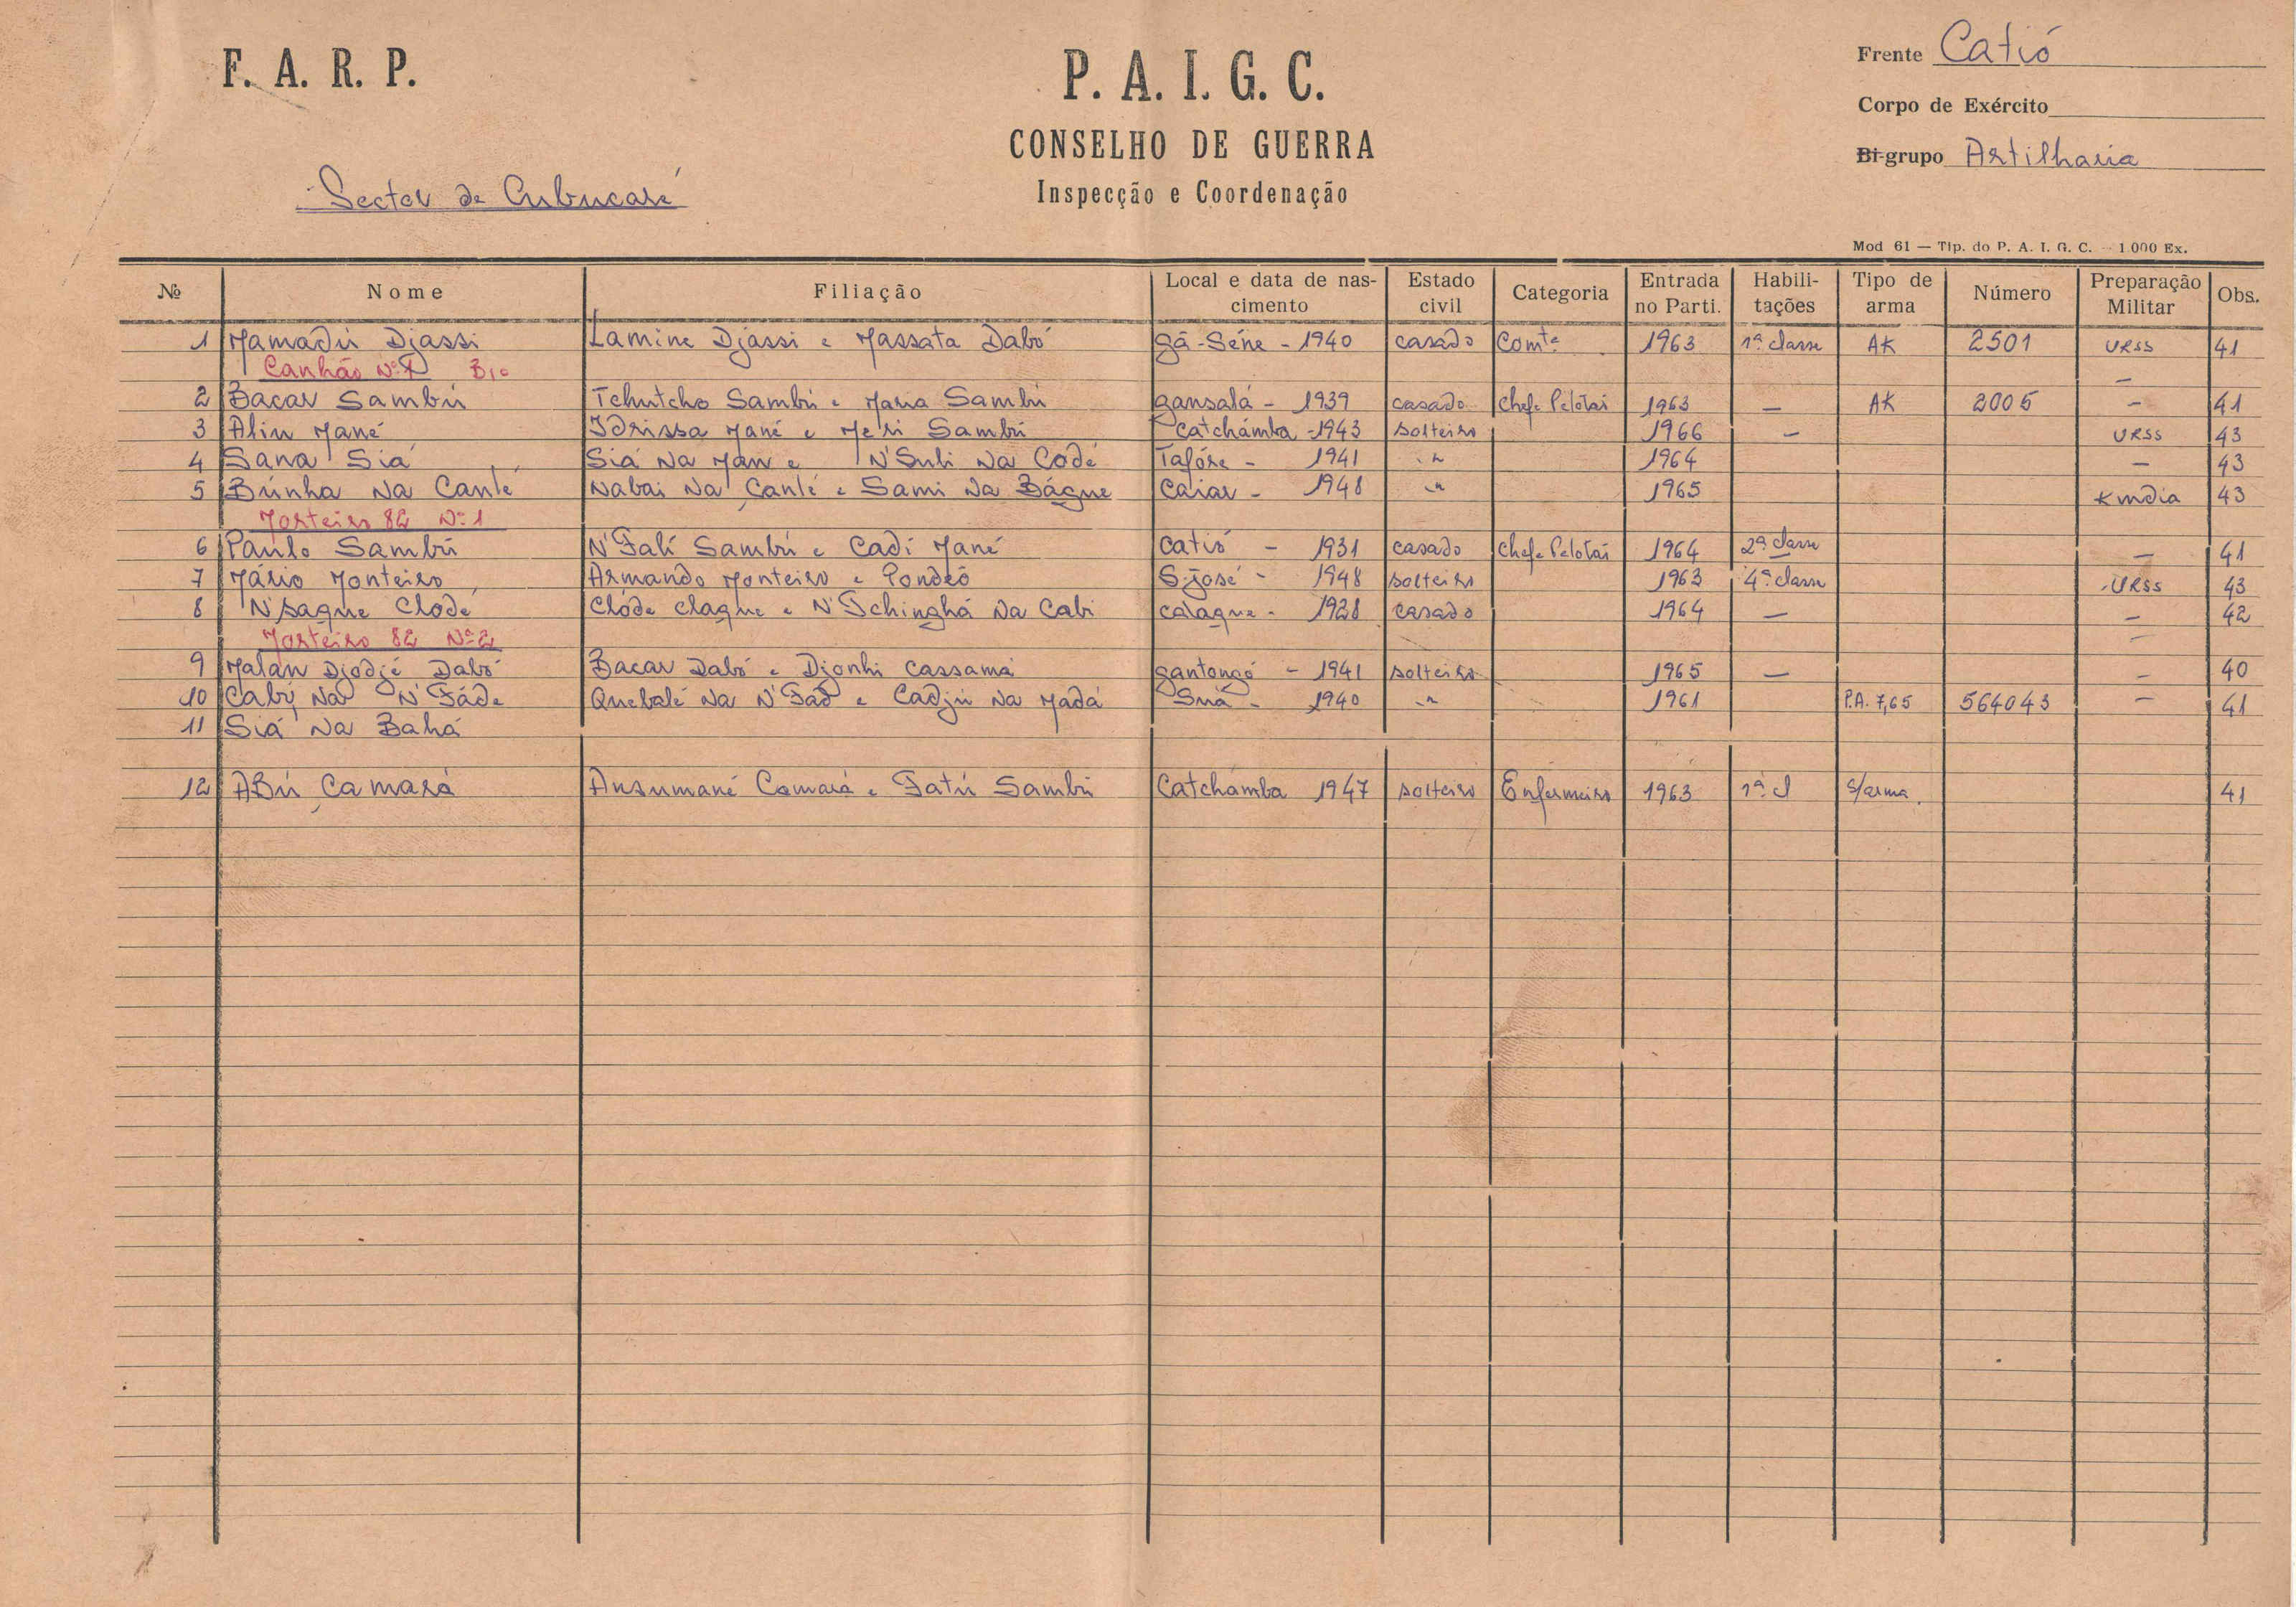 F. A. R. P.
P. A. I. G. C.
CONSELHO DE GUERRA
Inspecção e Coordenação
Frente Catió
Corpo de Exército
Bi-grupo Artilharia
Sector de Cubucaré
Mod 61 — Tip. do P. A. I. G. C. — 1.000 Ex.
Nº Nome Filiação Local e data de nascimento Estado civil Categoria Entrada no Parti. Habilitações Tipo de arma Número Preparação Militar Obs.
1 Mamadú Djassi Lamine Djassi e Massata Dabó Gã-Séne - 1940 casado Comte 1963 1ª classe AK 2501 URSS 41
Canhão Nº 1 B10 —
2 Bacar Sambú Tchutcho Sambú e Maria Sambú Gansalá - 1939 casado Chefe Pelotai 1963 — AK 2005 — 41
3 Aliu Mané Idrissa Mané e Meri Sambú Catchámba - 1943 solteiro 1966 — URSS 43
4 Sana Siá Siá Na Man e N'Suli Na Codé Tafóre - 1941 " 1964 — 43
5 Búnha Na Canté Nabai Na Canté e Sami Na Bágne Caiar - 1948 " 1965 Kindia 43
Morteiro 82 Nº 1
6 Paulo Sambú N'Fali Sambú e Cadi Mané Catió - 1931 casado Chefe Pelotai 1964 2ª classe — 41
7 Mário Monteiro Armando Monteiro e Pondéó S. José - 1948 solteiro 1963 4ª classe URSS 43
8 N'saque Clodé Clóde Claque e N'Tchinghá Na Cabi Calaque - 1928 casado 1964 — — 42
Morteiro 82 Nº 2 —
9 Malan Djodjé Dabó Bacar Dabó e Djonhi Cassamá Gantongó - 1941 solteiro 1965 — — 40
10 Cabý Na N'Fáde Quebalé Na N'Fad e Cadjú Na Madá Suá - 1940 " 1961 P.A. 7,65 564043 — 41
11 Siá Na Bahá
12 Abú Camará Ansumané Camará e Fatú Sambú Catchámba 1947 solteiro Enfermeiro 1963 1ª cl S/arma 41